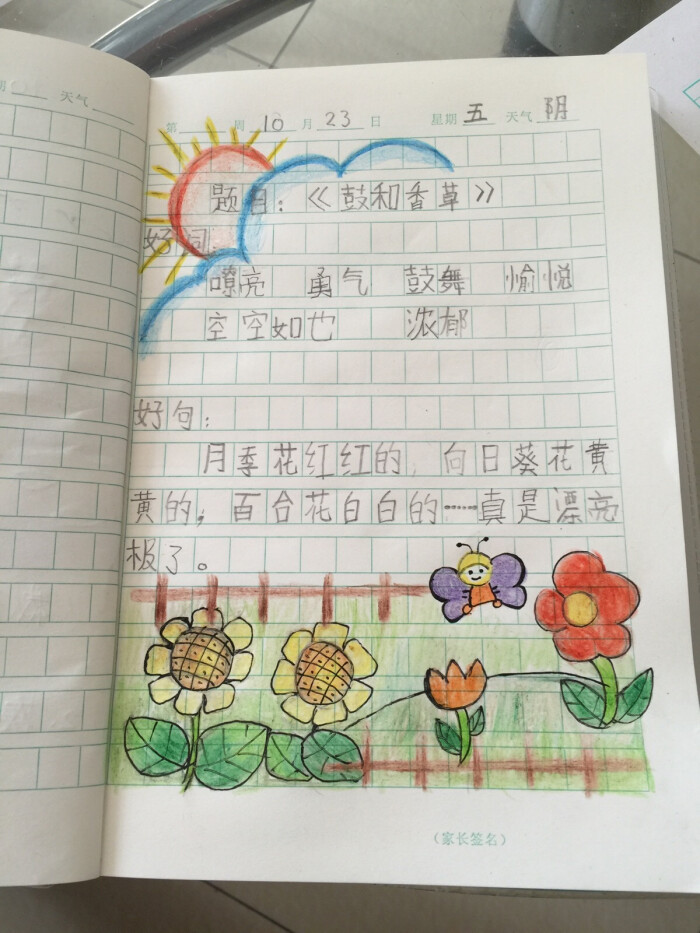 天气
第 周 10 月 23 日 星期 五 天气 阴
题目：《鼓和香草》
好词：
嘹亮 勇气 鼓舞 愉悦
空空如也 浓郁
好句：
月季花红红的，向日葵花黄
黄的，百合花白白的……真是漂亮
极了。
（家长签名）